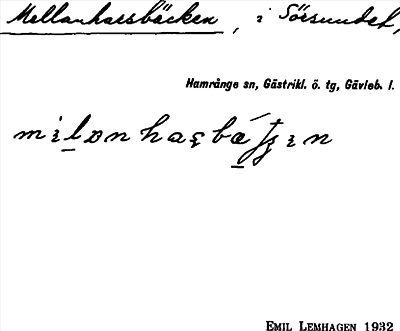 Mellanharsbäcken, i Sörsundet,
Hamrånge sn, Gästrikl. ö. tg, Gävleb. l.
EMIL LEMHAGEN 1932